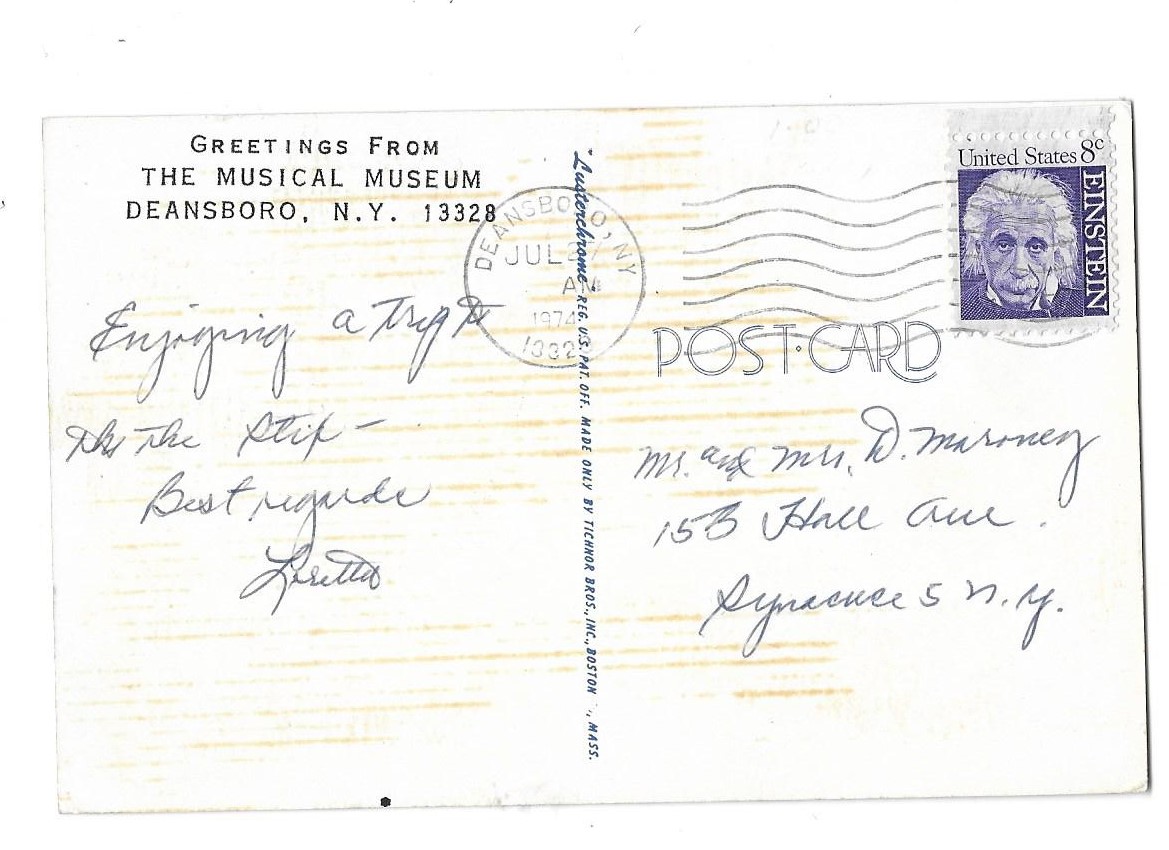 GREETINGS FROM
THE MUSICAL MUSEUM
DEANSBORO, N.Y. 13328
Enjoying a trip to
the Stip -
Best regards
Loretta
"Lusterchrome REG. U.S. PAT. OFF. MADE ONLY BY TICHNOR BROS., INC., BOSTON, MASS.
DEANSBORO, NY
JUL 27
AM
1974
1332
United States 8c
EINSTEIN
POST·CARD
Mr. and Mrs. D. Maroney
153 Hall Ave.
Syracuse 5 N.Y.